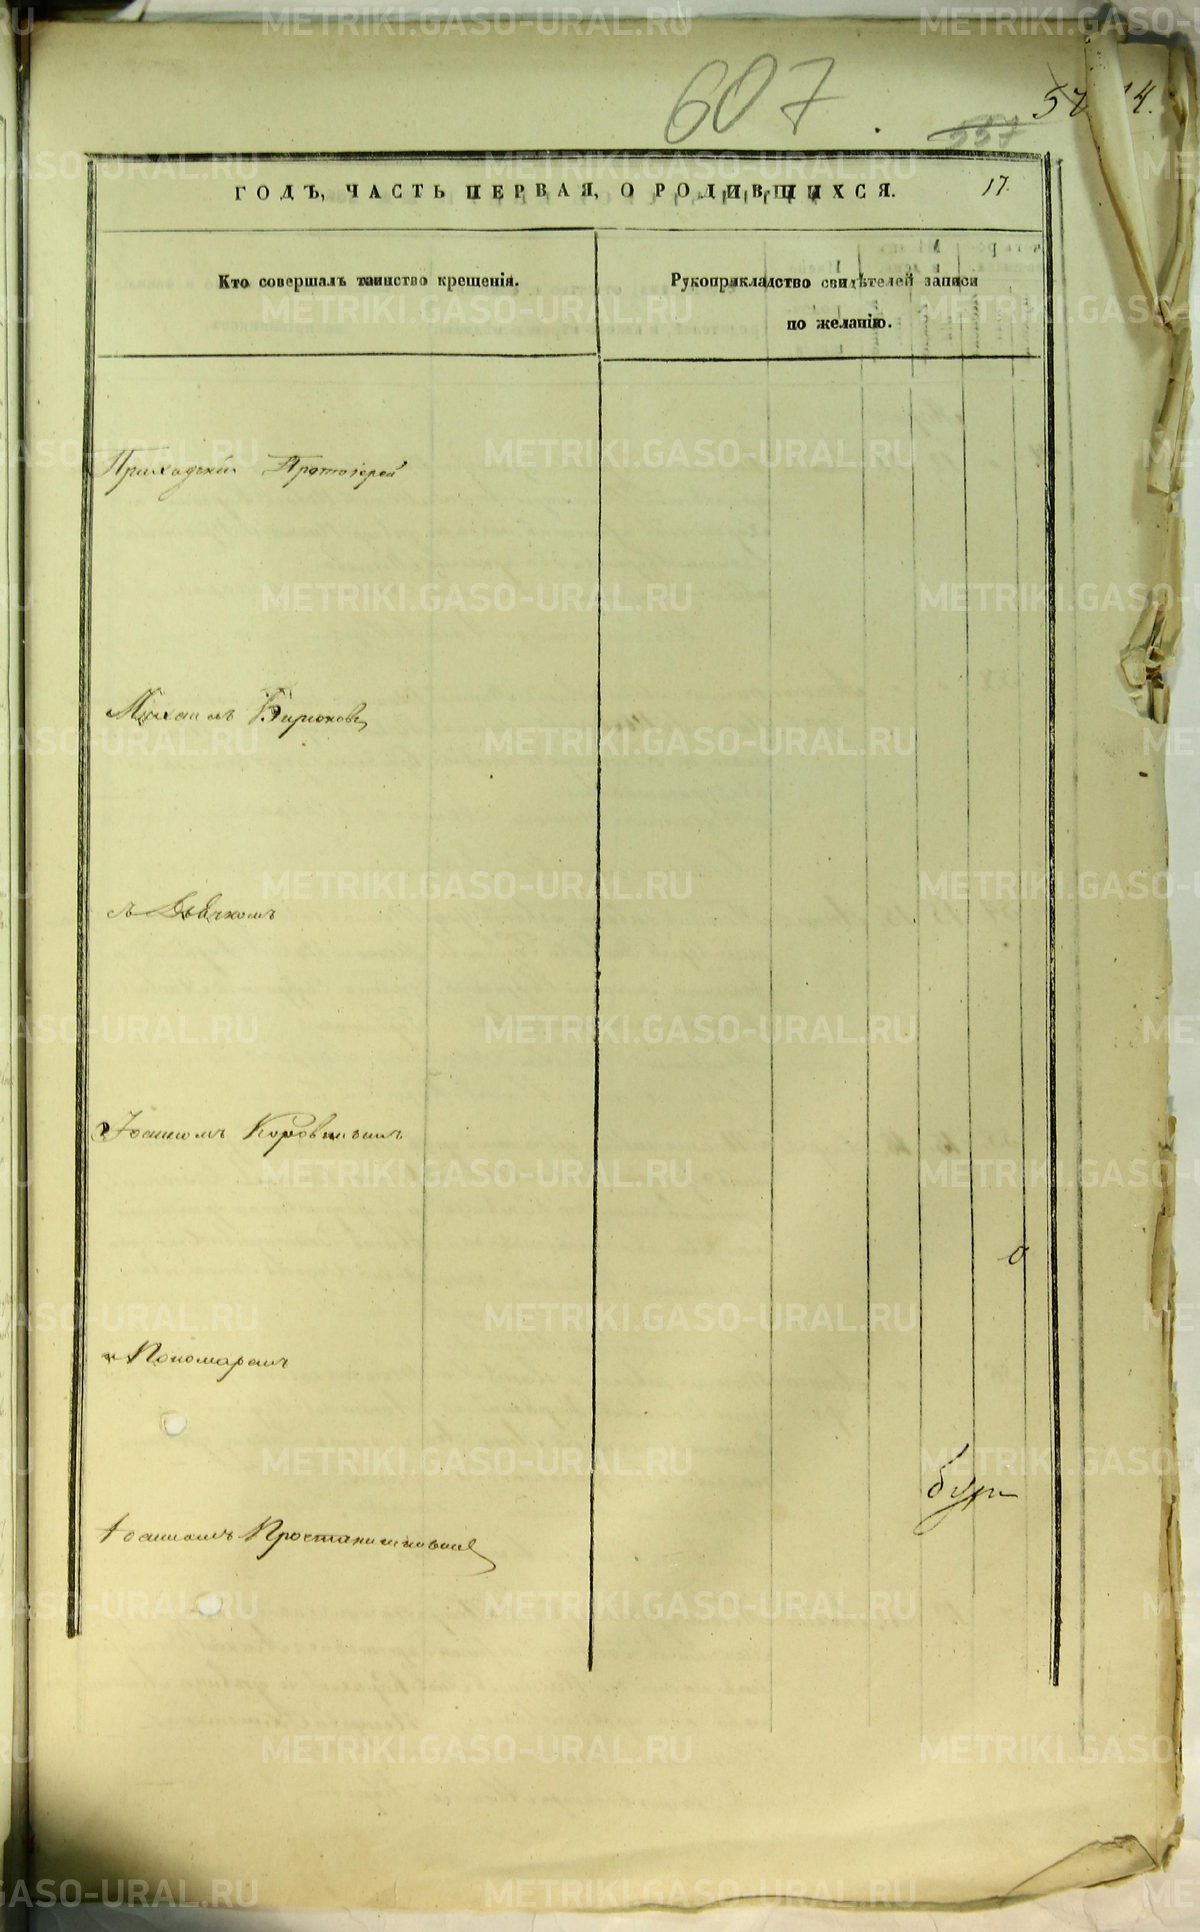 607
557
14.
ГОДЪ, ЧАСТЬ ПЕРВАЯ, О РОДИВШИХСЯ.
17.
Кто совершалъ таинство крещенія.
Рукоприкладство свидѣтелей записи
по желанію.
Приходскій Протоіерей
Михаилъ Бирюковъ
съ Дьячкомъ
Іоанномъ Коровинымъ
и Пономаремъ
Іоанномъ
METRIKI.GASO-URAL.RU